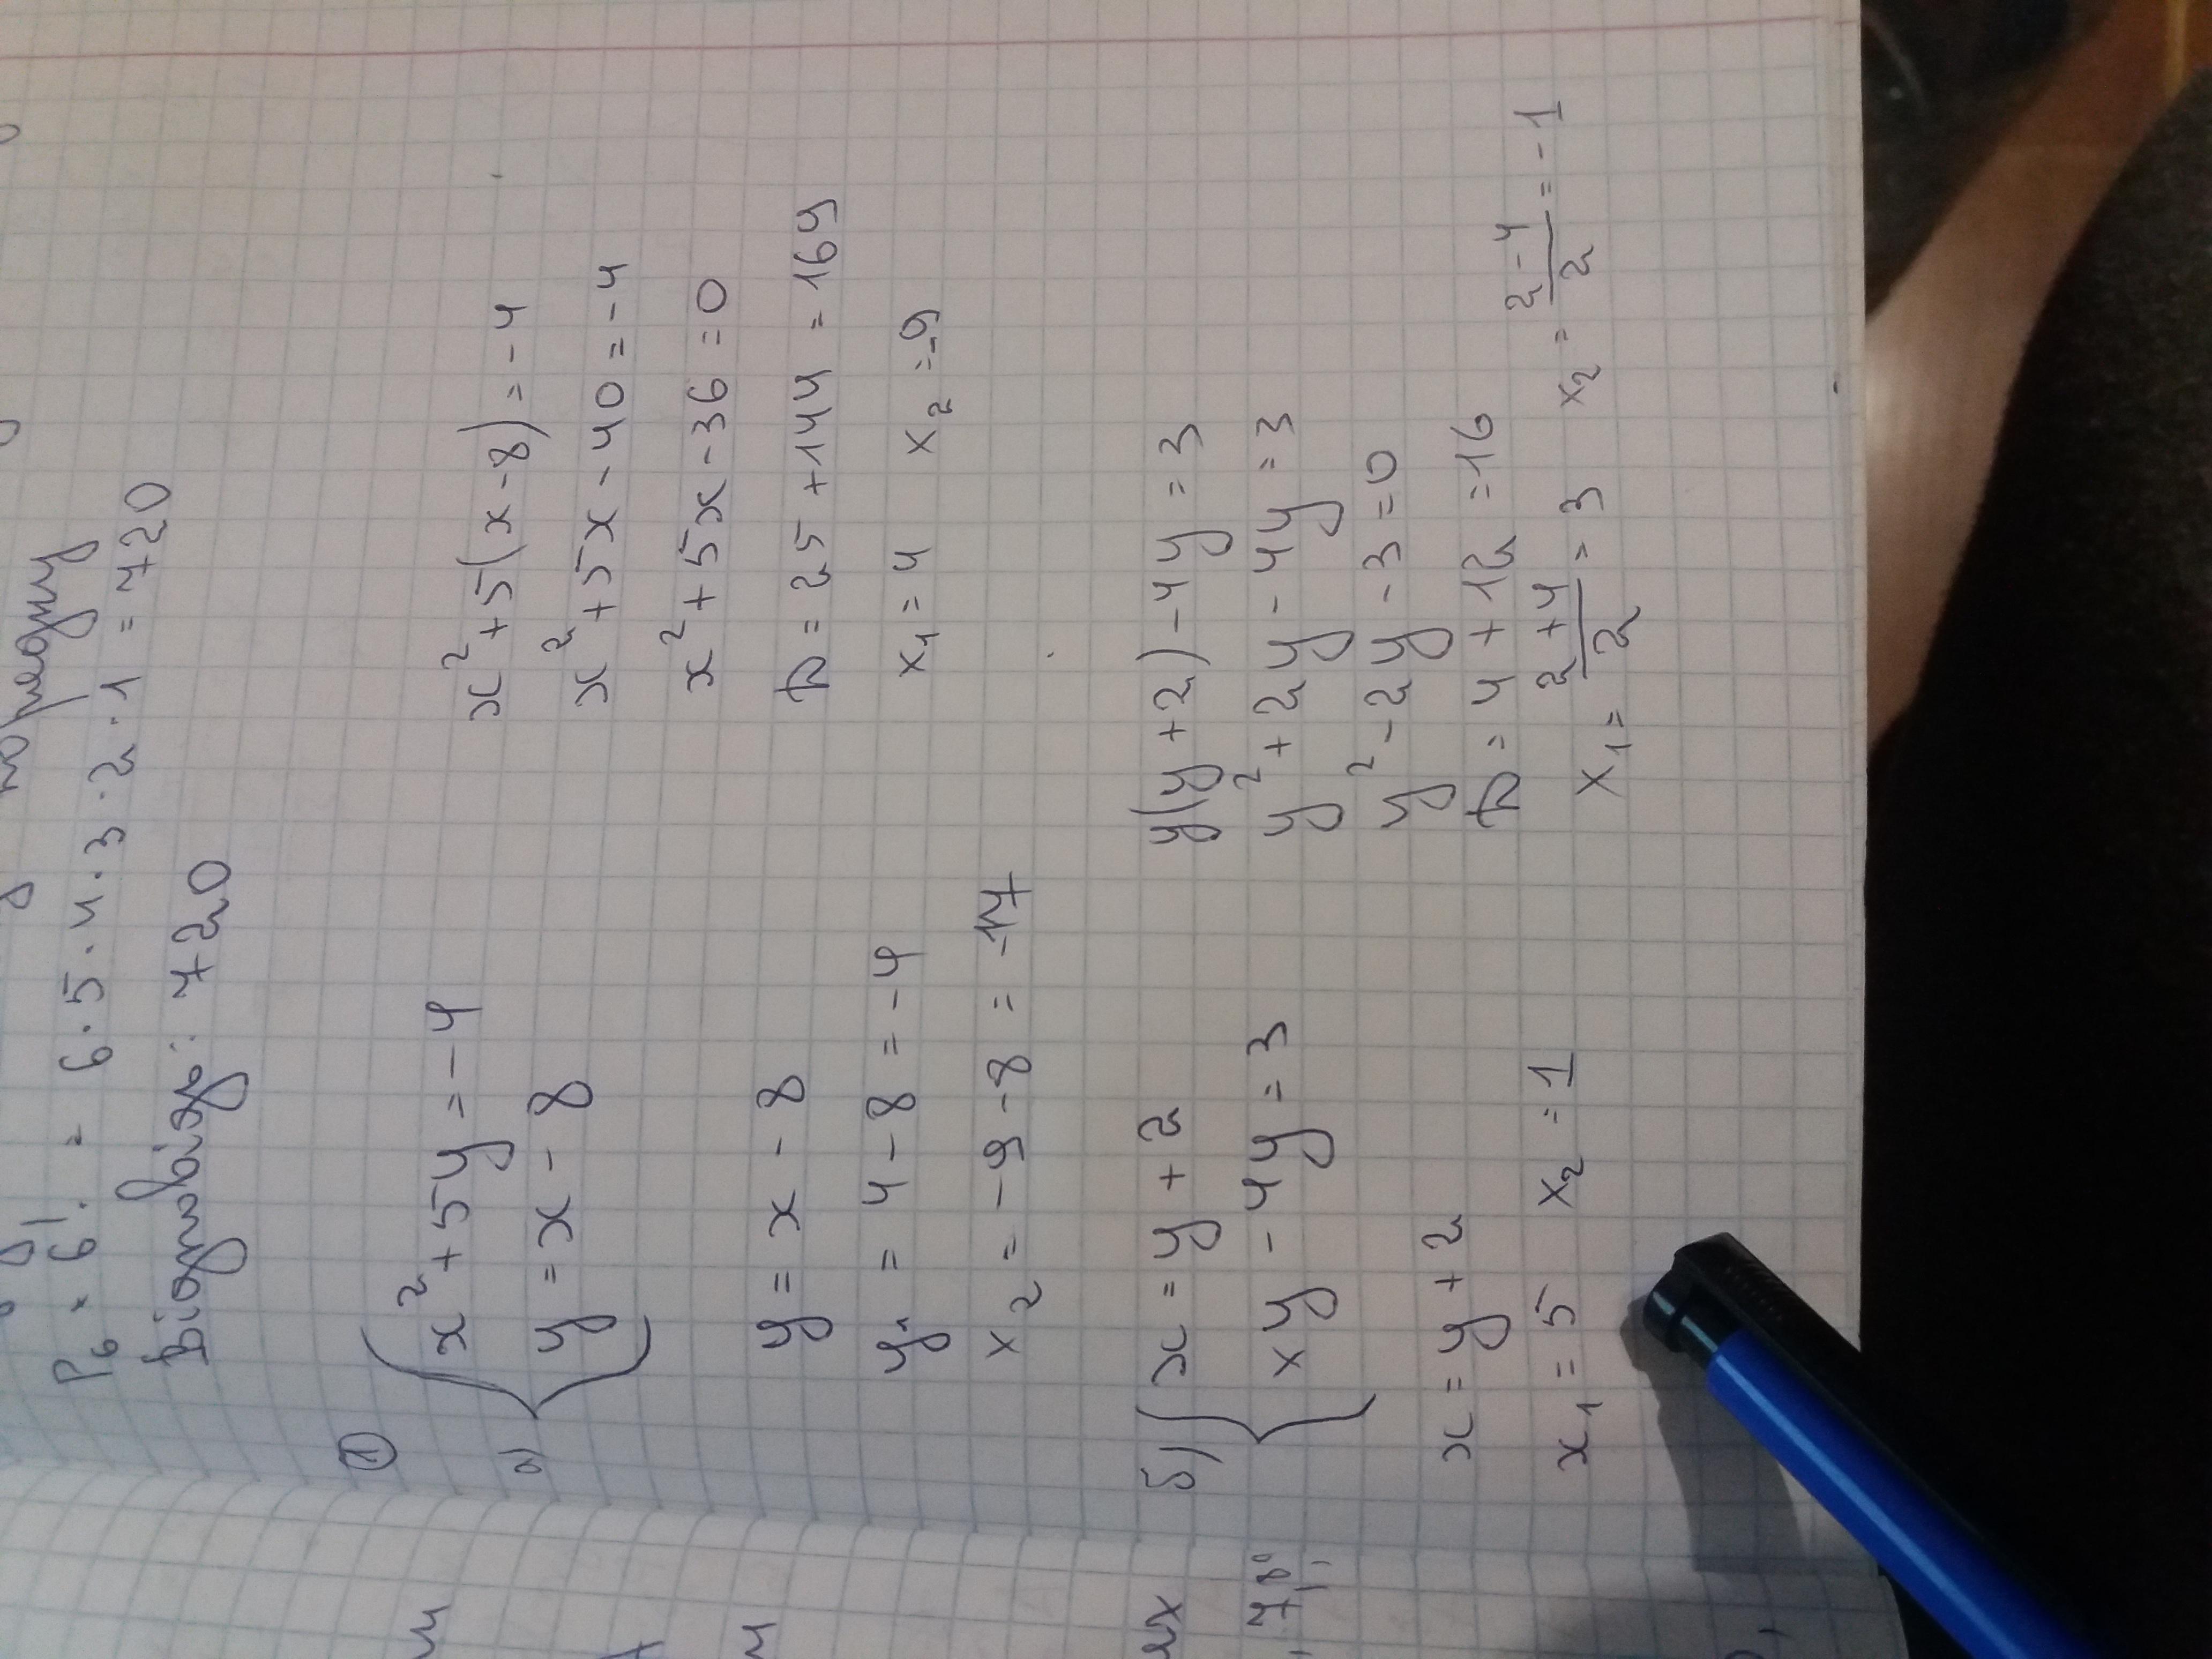 по рядку
P₆ = 6! = 6 · 5 · 4 · 3 · 2 · 1 = 720
Відповідь: 720
①
а) { x² + 5y = -4
y = x - 8
x² + 5(x - 8) = -4
x² + 5x - 40 = -4
x² + 5x - 36 = 0
D = 25 + 144 = 169
x₁ = 4 x₂ = -9
y = x - 8
y₁ = 4 - 8 = -4
x₂ = -9 - 8 = -17
б) { x = y + 2
xy - 4y = 3
y(y + 2) - 4y = 3
y² + 2y - 4y = 3
y² - 2y - 3 = 0
D = 4 + 12 = 16
x₁ = (2 + 4)/2 = 3 x₂ = (2 - 4)/2 = -1
x = y + 2
x₁ = 5 x₂ = 1